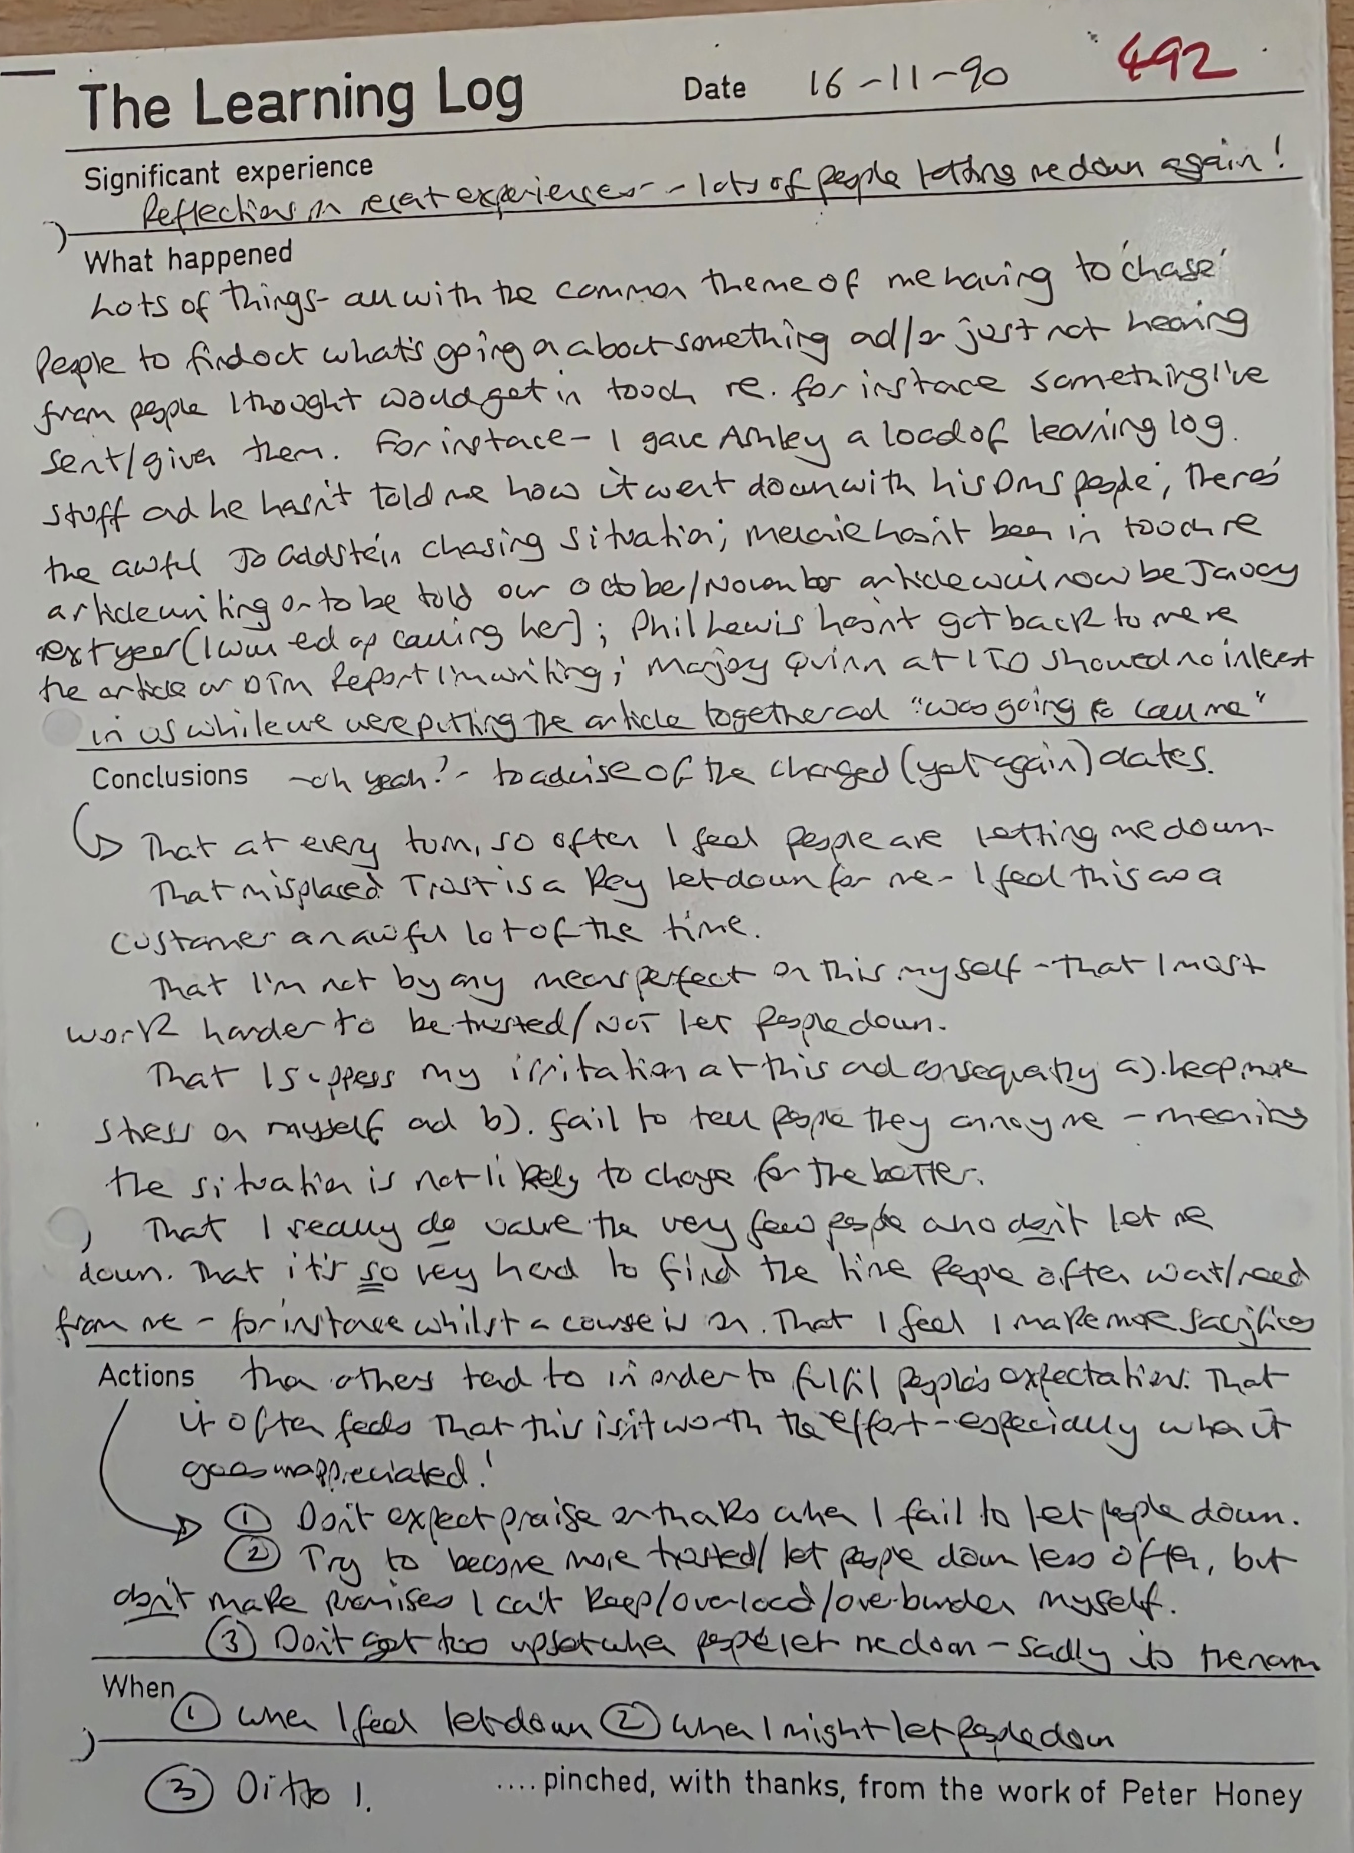 The Learning Log Date 16-11-90 492
Significant experience
Reflections on recent experiences - lots of people letting me down again!
What happened
Lots of things - all with the common theme of me having to 'chase'
people to find out what's going on about something and/or just not hearing
from people I thought would get in touch re. for instance something I've
sent/given them. For instance - I gave Ashley a load of learning log
stuff and he hasn't told me how it went down with his DMS people; there's
the awful Jo Goldstein chasing situation; Melanie hasn't been in touch re
article writing or to be told our October/November article will now be January
next year (I wound up calling her); Phil Lewis hasn't got back to me re
the article or DTM Report I'm writing; Marjory Quinn at ITD showed no interest
in us while we were putting the article together and "was going to call me"
Conclusions - oh yeah? - to advise of the changed (yet again) dates.
That at every turn, so often I feel people are letting me down.
That misplaced Trust is a key let down for me - I feel this as a
customer an awful lot of the time.
That I'm not by any means perfect on this myself - that I must
work harder to be trusted/NOT let people down.
That I suppress my irritation at this and consequently a). heap more
stress on myself and b). fail to tell people they annoy me - meaning
the situation is not likely to change for the better.
That I really do value the very few people who don't let me
down. That it's so very hard to find the time people often want/need
from me - for instance whilst a course is on. That I feel I make more sacrifices
Actions than others tend to in order to fulfil people's expectations. That
it often feels that this isn't worth the effort - especially when it
goes unappreciated!
① Don't expect praise or thanks when I fail to let people down.
② Try to become more trusted/let people down less often, but
don't make promises I can't keep/overload/over-burden myself.
③ Don't get too upset when people let me down - sadly it's the norm
When
① when I feel let down ② when I might let people down
③ Ditto 1. ....pinched, with thanks, from the work of Peter Honey